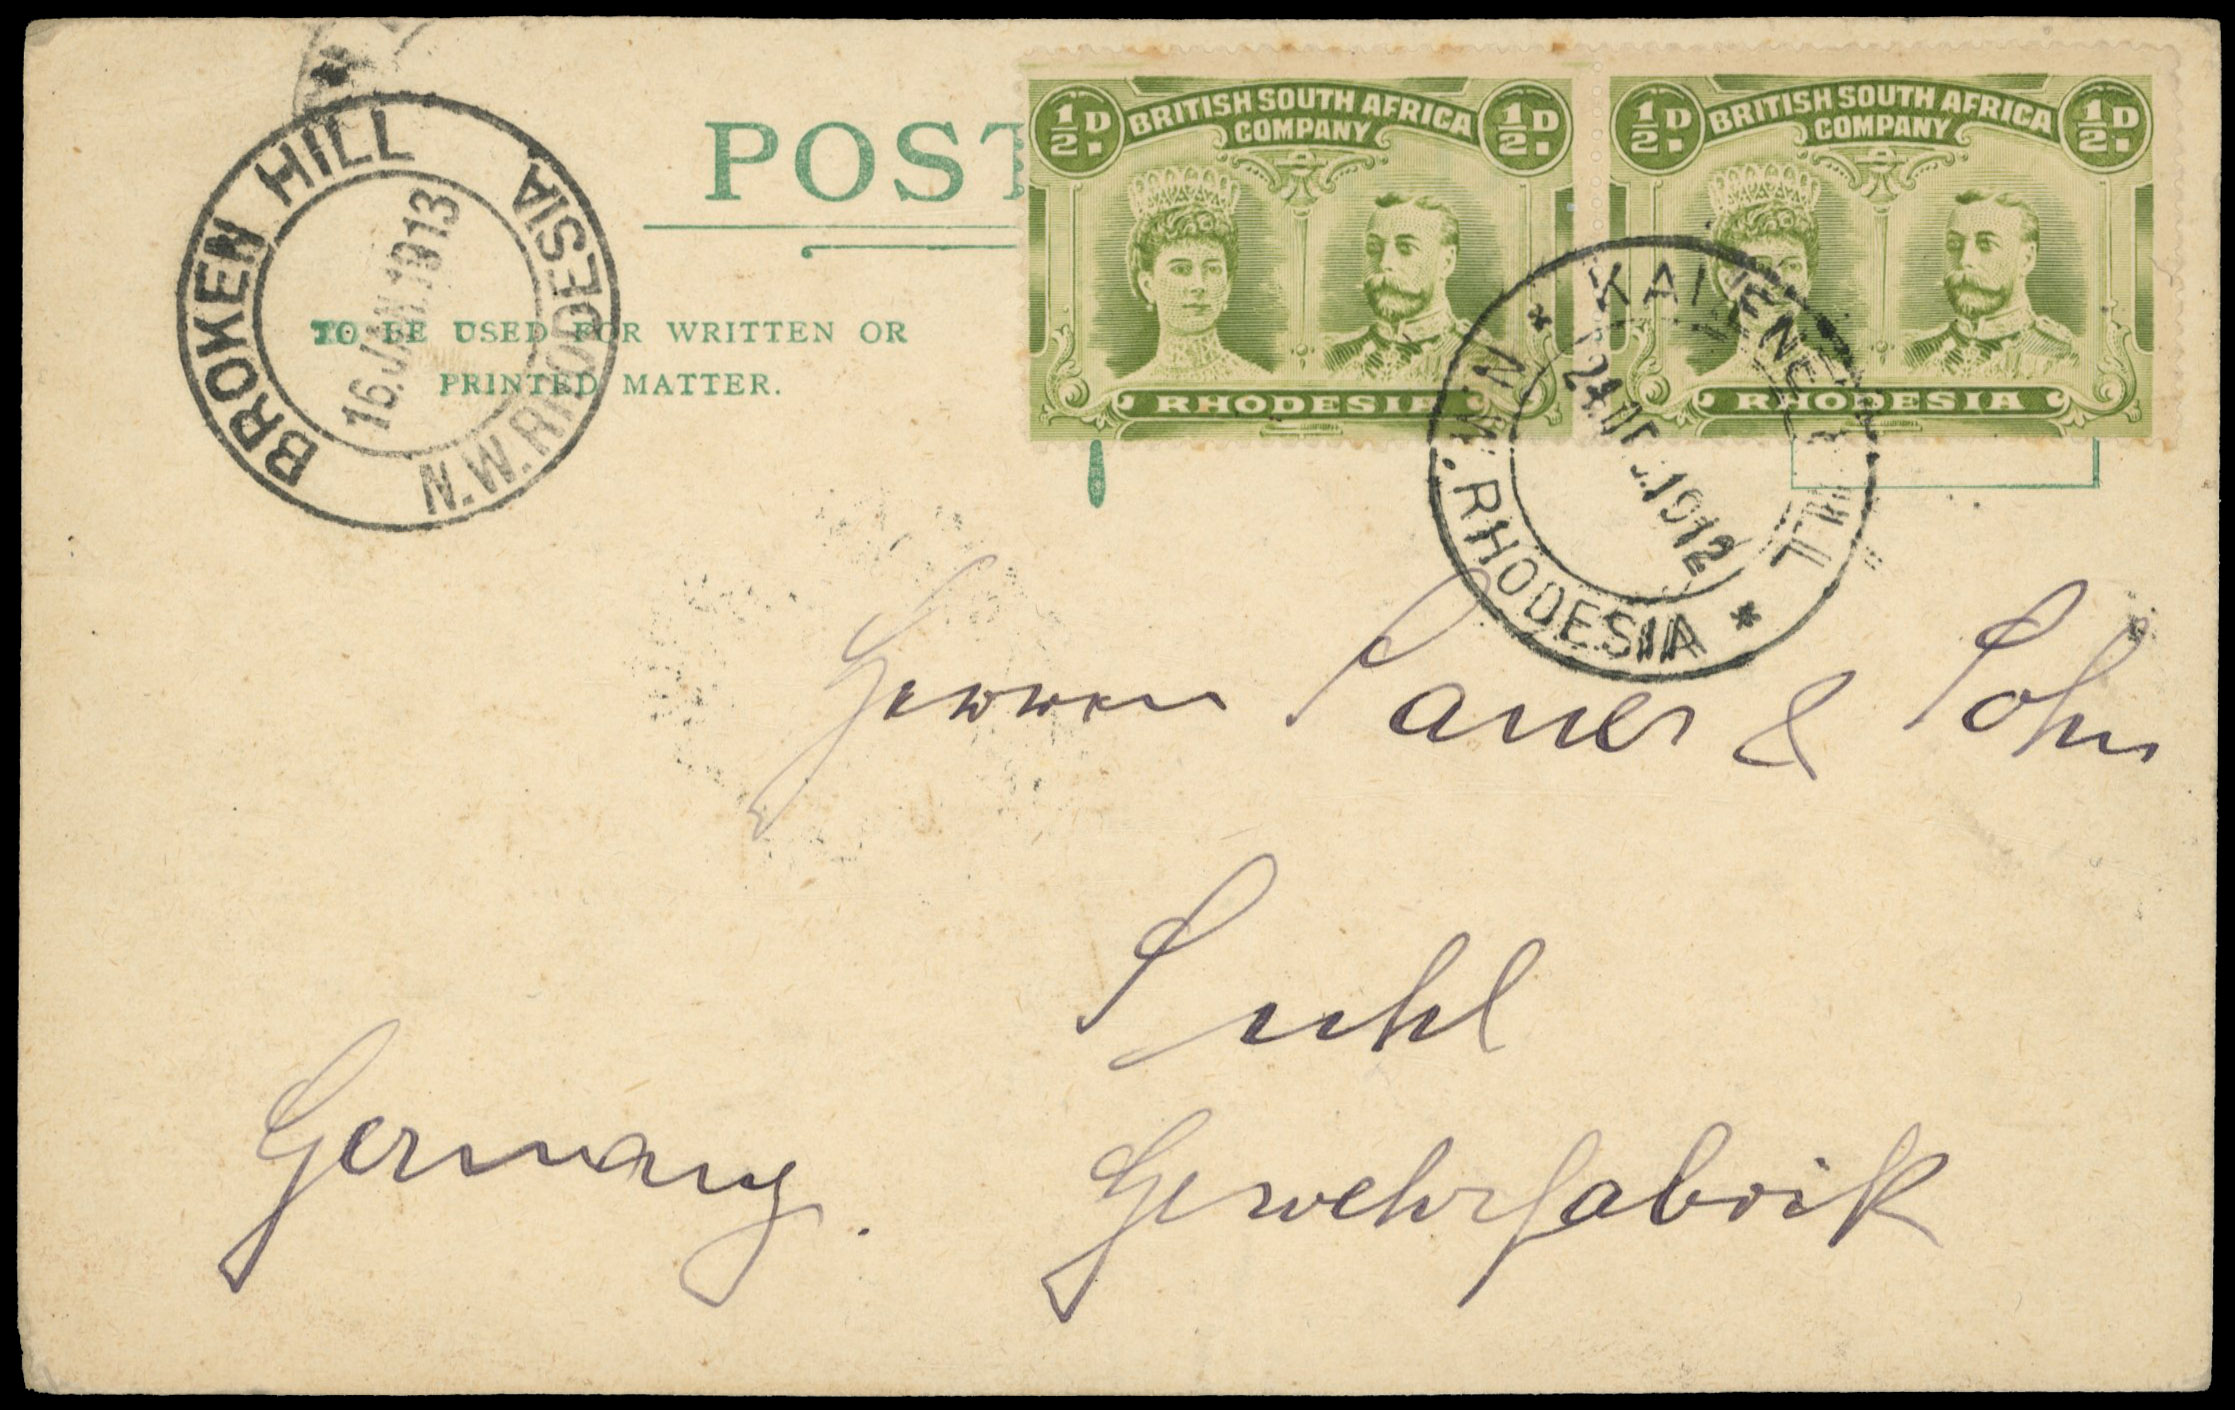 POST
TO BE USED FOR WRITTEN OR
PRINTED MATTER.
BROKEN HILL
16.JAN.1913
N.W.RHODESIA
½D. BRITISH SOUTH AFRICA COMPANY ½D.
RHODESIA
½D. BRITISH SOUTH AFRICA COMPANY ½D.
RHODESIA
KALENE HILL
24.DEC.1912
N.W.RHODESIA
Herren Sauer & Sohn
Suhl
Germany.
Gewehrfabrik